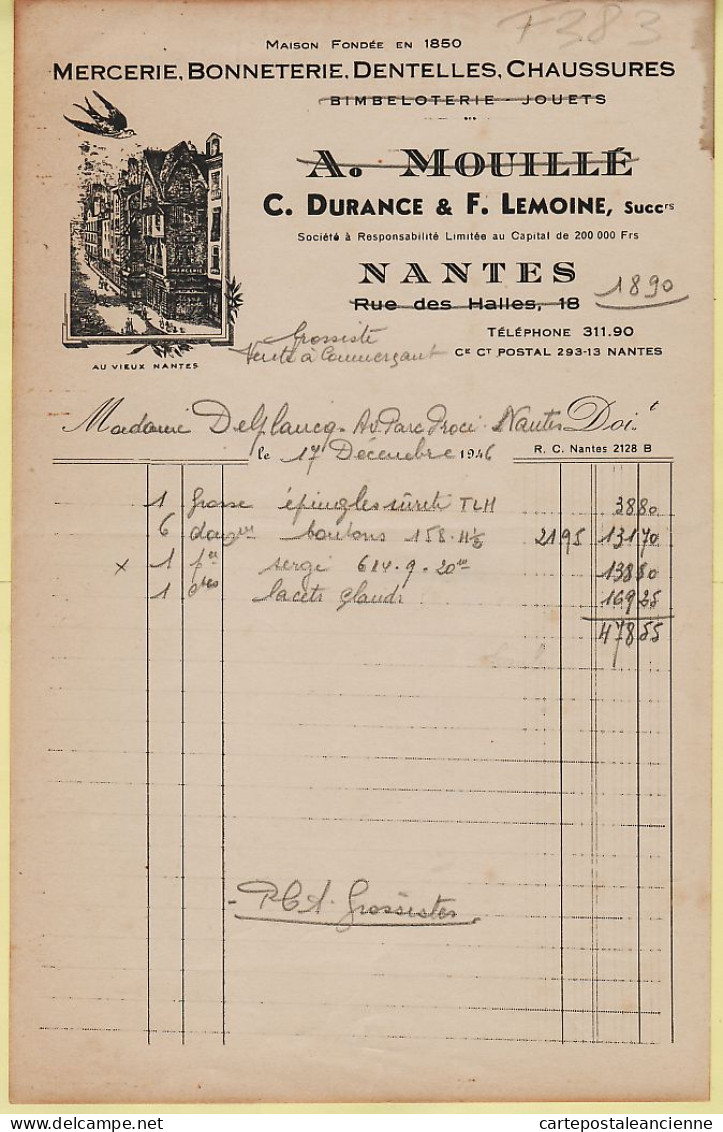 F383
MAISON FONDÉE EN 1850
MERCERIE, BONNETERIE, DENTELLES, CHAUSSURES
BIMBELOTERIE - JOUETS
A. MOUILLÉ
C. DURANCE & F. LEMOINE, Succrs
Société à Responsabilité Limitée au Capital de 200 000 Frs
NANTES
1890
Rue des Halles, 18
Grossiste
TÉLÉPHONE 311.90
Vente à Commerçant
CE CT POSTAL 293-13 NANTES
AU VIEUX NANTES
Madame Delplancq Av. Parc Procé Nantes Doit
le 17 Décembre 1946
R. C. Nantes 2128 B
1 grosse épingles sûreté TLH 38 80
6 douznes boutons 158 21 95 131 70
x 1 serge 624.9.20 138 80
1 lacets 169 25
478 55
P.C.A. Grossistes
cartepostaleancienne